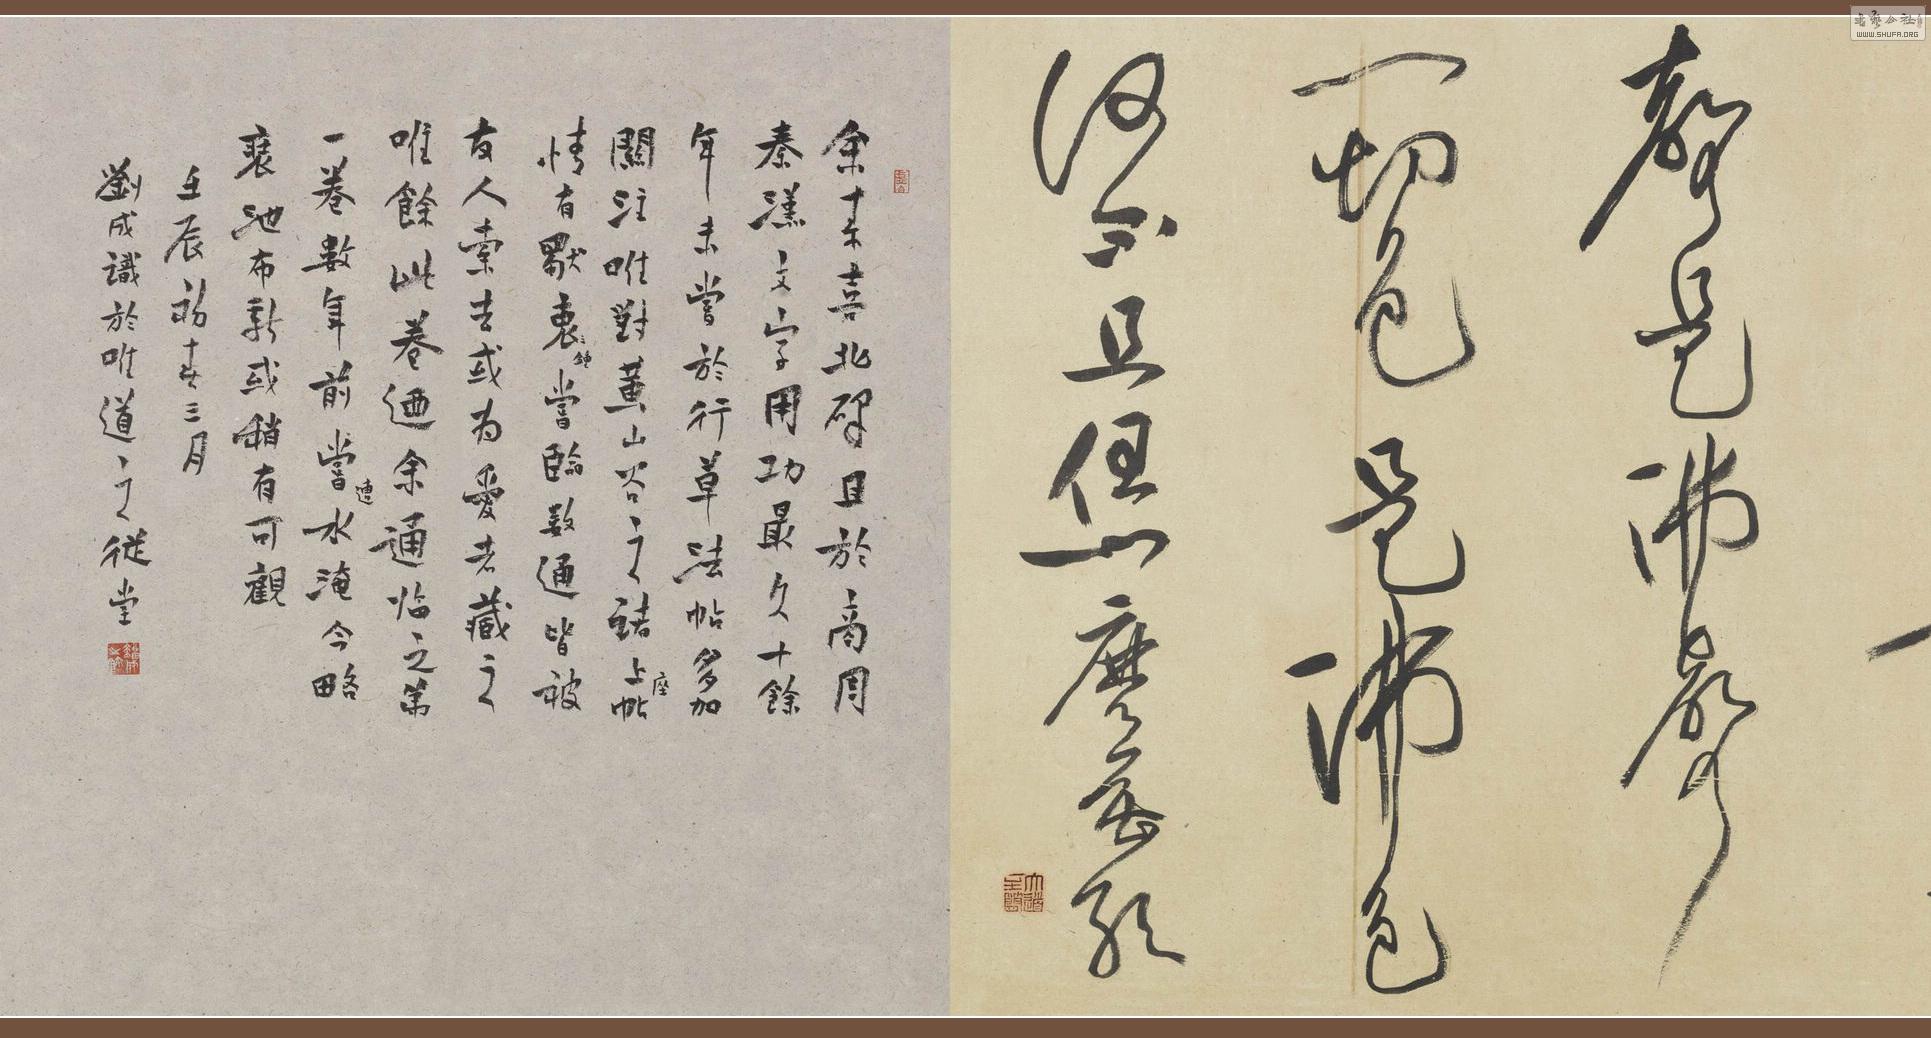 聲是佛聲
一切色是佛色
何不且恁麼會取
余素喜北碑且於商周
秦漢文字用功最久十餘
年未嘗於行草法帖多加
關注唯對黃山谷之諸上座帖
情有獨衷鍾嘗臨數通皆被
友人索去或為愛者藏之
唯餘此卷迺余通临之第
一卷數年前嘗遭水淹今略
裹池布新或稍有可觀
壬辰初春三月
劉成識於唯道之從堂
書藝公社
WWW.SHUFA.ORG